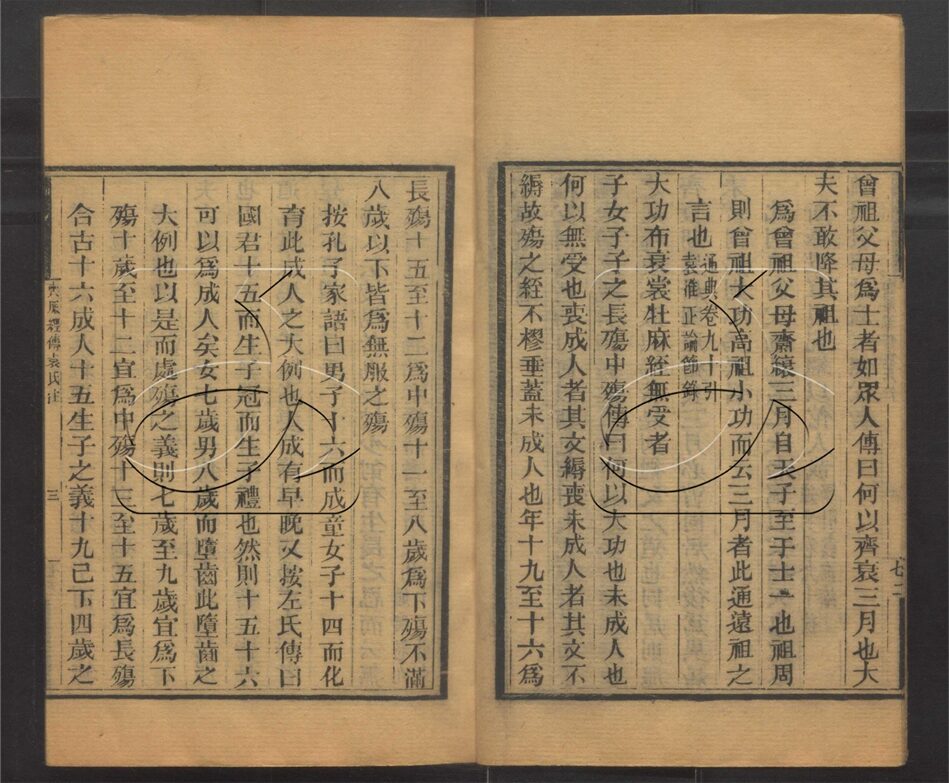 曾祖父母爲士者如眾人傳曰何以齊衰三月也大
夫不敢降其祖也
爲曾祖父母齊縗三月自天子至于士一也祖周
則曾祖大功高祖小功而云三月者此通遠祖之
言也通典卷九十引
袁準正論節錄
大功布衰裳牡麻絰無受者
子女子子之長殤中殤傳曰何以大功也未成人也
何以無受也喪成人者其文縟喪未成人者其文不
縟故殤之絰不樛垂蓋未成人也年十九至十六爲
長殤十五至十二爲中殤十一至八歲爲下殤不滿
八歲以下皆爲無服之殤
按孔子家語曰男子十六而成童女子十四而化
育此成人之大例也人成有早晚又按左氏傳曰
國君十五而生子冠而生子禮也然則十五十六
可以爲成人矣女七歲男八歲而墮齒此墮齒之
大例也以是而處殤之義則七歲至九歲宜爲下
殤十歲至十二宜爲中殤十三至十五宜爲長殤
合古十六成人十五生子之義十九已下四歲之
喪服經傳袁氏注
三